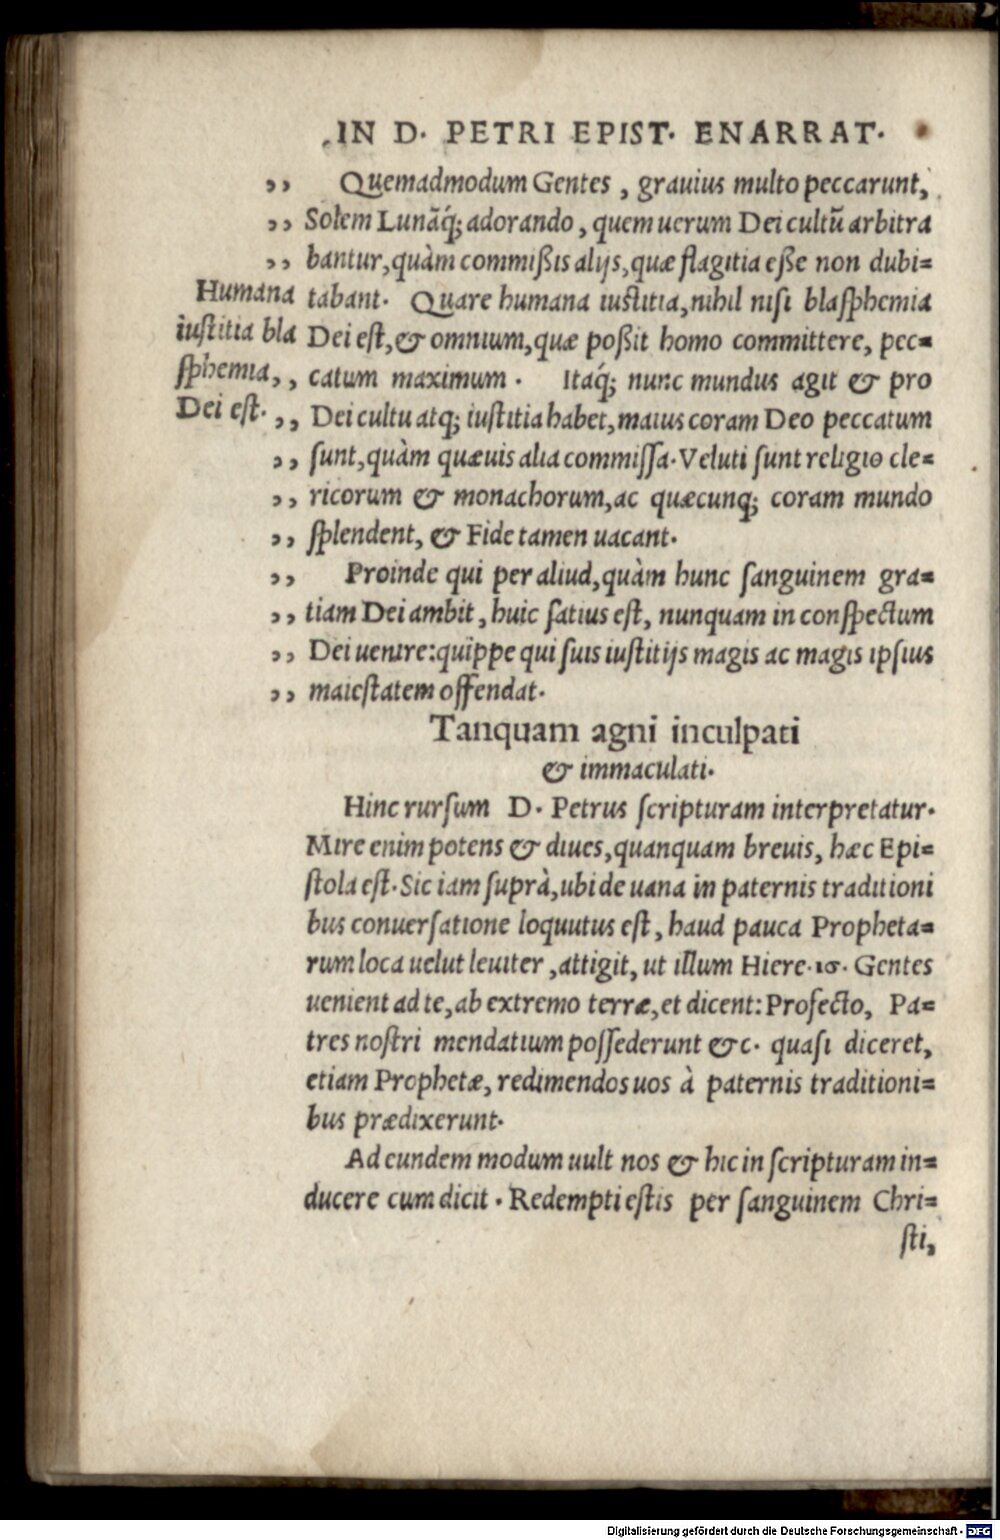 IN D. PETRI EPIST. ENARRAT.
,, Quemadmodum Gentes, grauius multo peccarunt,
,, Solem Lunāq́; adorando, quem uerum Dei cultū arbitra
,, bantur, quàm commißis alijs, quæ flagitia eße non dubi=
Humana tabant. Quare humana iustitia, nihil nisi blasphemia
iustitia bla Dei est, & omnium, quæ poßit homo committere, pec=
sphemia, ,, catum maximum. Itaq́; nunc mundus agit & pro
Dei est. ,, Dei cultu atq; iustitia habet, maius coram Deo peccatum
,, sunt, quàm quæuis alia commissa. Veluti sunt religio cle=
,, ricorum & monachorum, ac quæcunq; coram mundo
,, splendent, & Fide tamen uacant.
,, Proinde qui per aliud, quàm hunc sanguinem gra=
,, tiam Dei ambit, huic satius est, nunquam in conspectum
,, Dei uenire: quippe qui suis iustitijs magis ac magis ipsius
,, maiestatem offendat.
Tanquam agni inculpati
& immaculati.
Hinc rursum D. Petrus scripturam interpretatur.
Mire enim potens & diues, quanquam breuis, hæc Epi=
stola est. Sic iam suprà, ubi de uana in paternis traditioni
bus conuersatione loquutus est, haud pauca Propheta=
rum loca uelut leuiter, attigit, ut illum Hiere. 16. Gentes
uenient ad te, ab extremo terræ, et dicent: Profecto, Pa=
tres nostri mendatium possederunt &c. quasi diceret,
etiam Prophetæ, redimendos uos à paternis traditioni=
bus prædixerunt.
Ad eundem modum uult nos & hic in scripturam in=
ducere cum dicit. Redempti estis per sanguinem Chri=
sti,
Digitalisierung gefördert durch die Deutsche Forschungsgemeinschaft - DFG